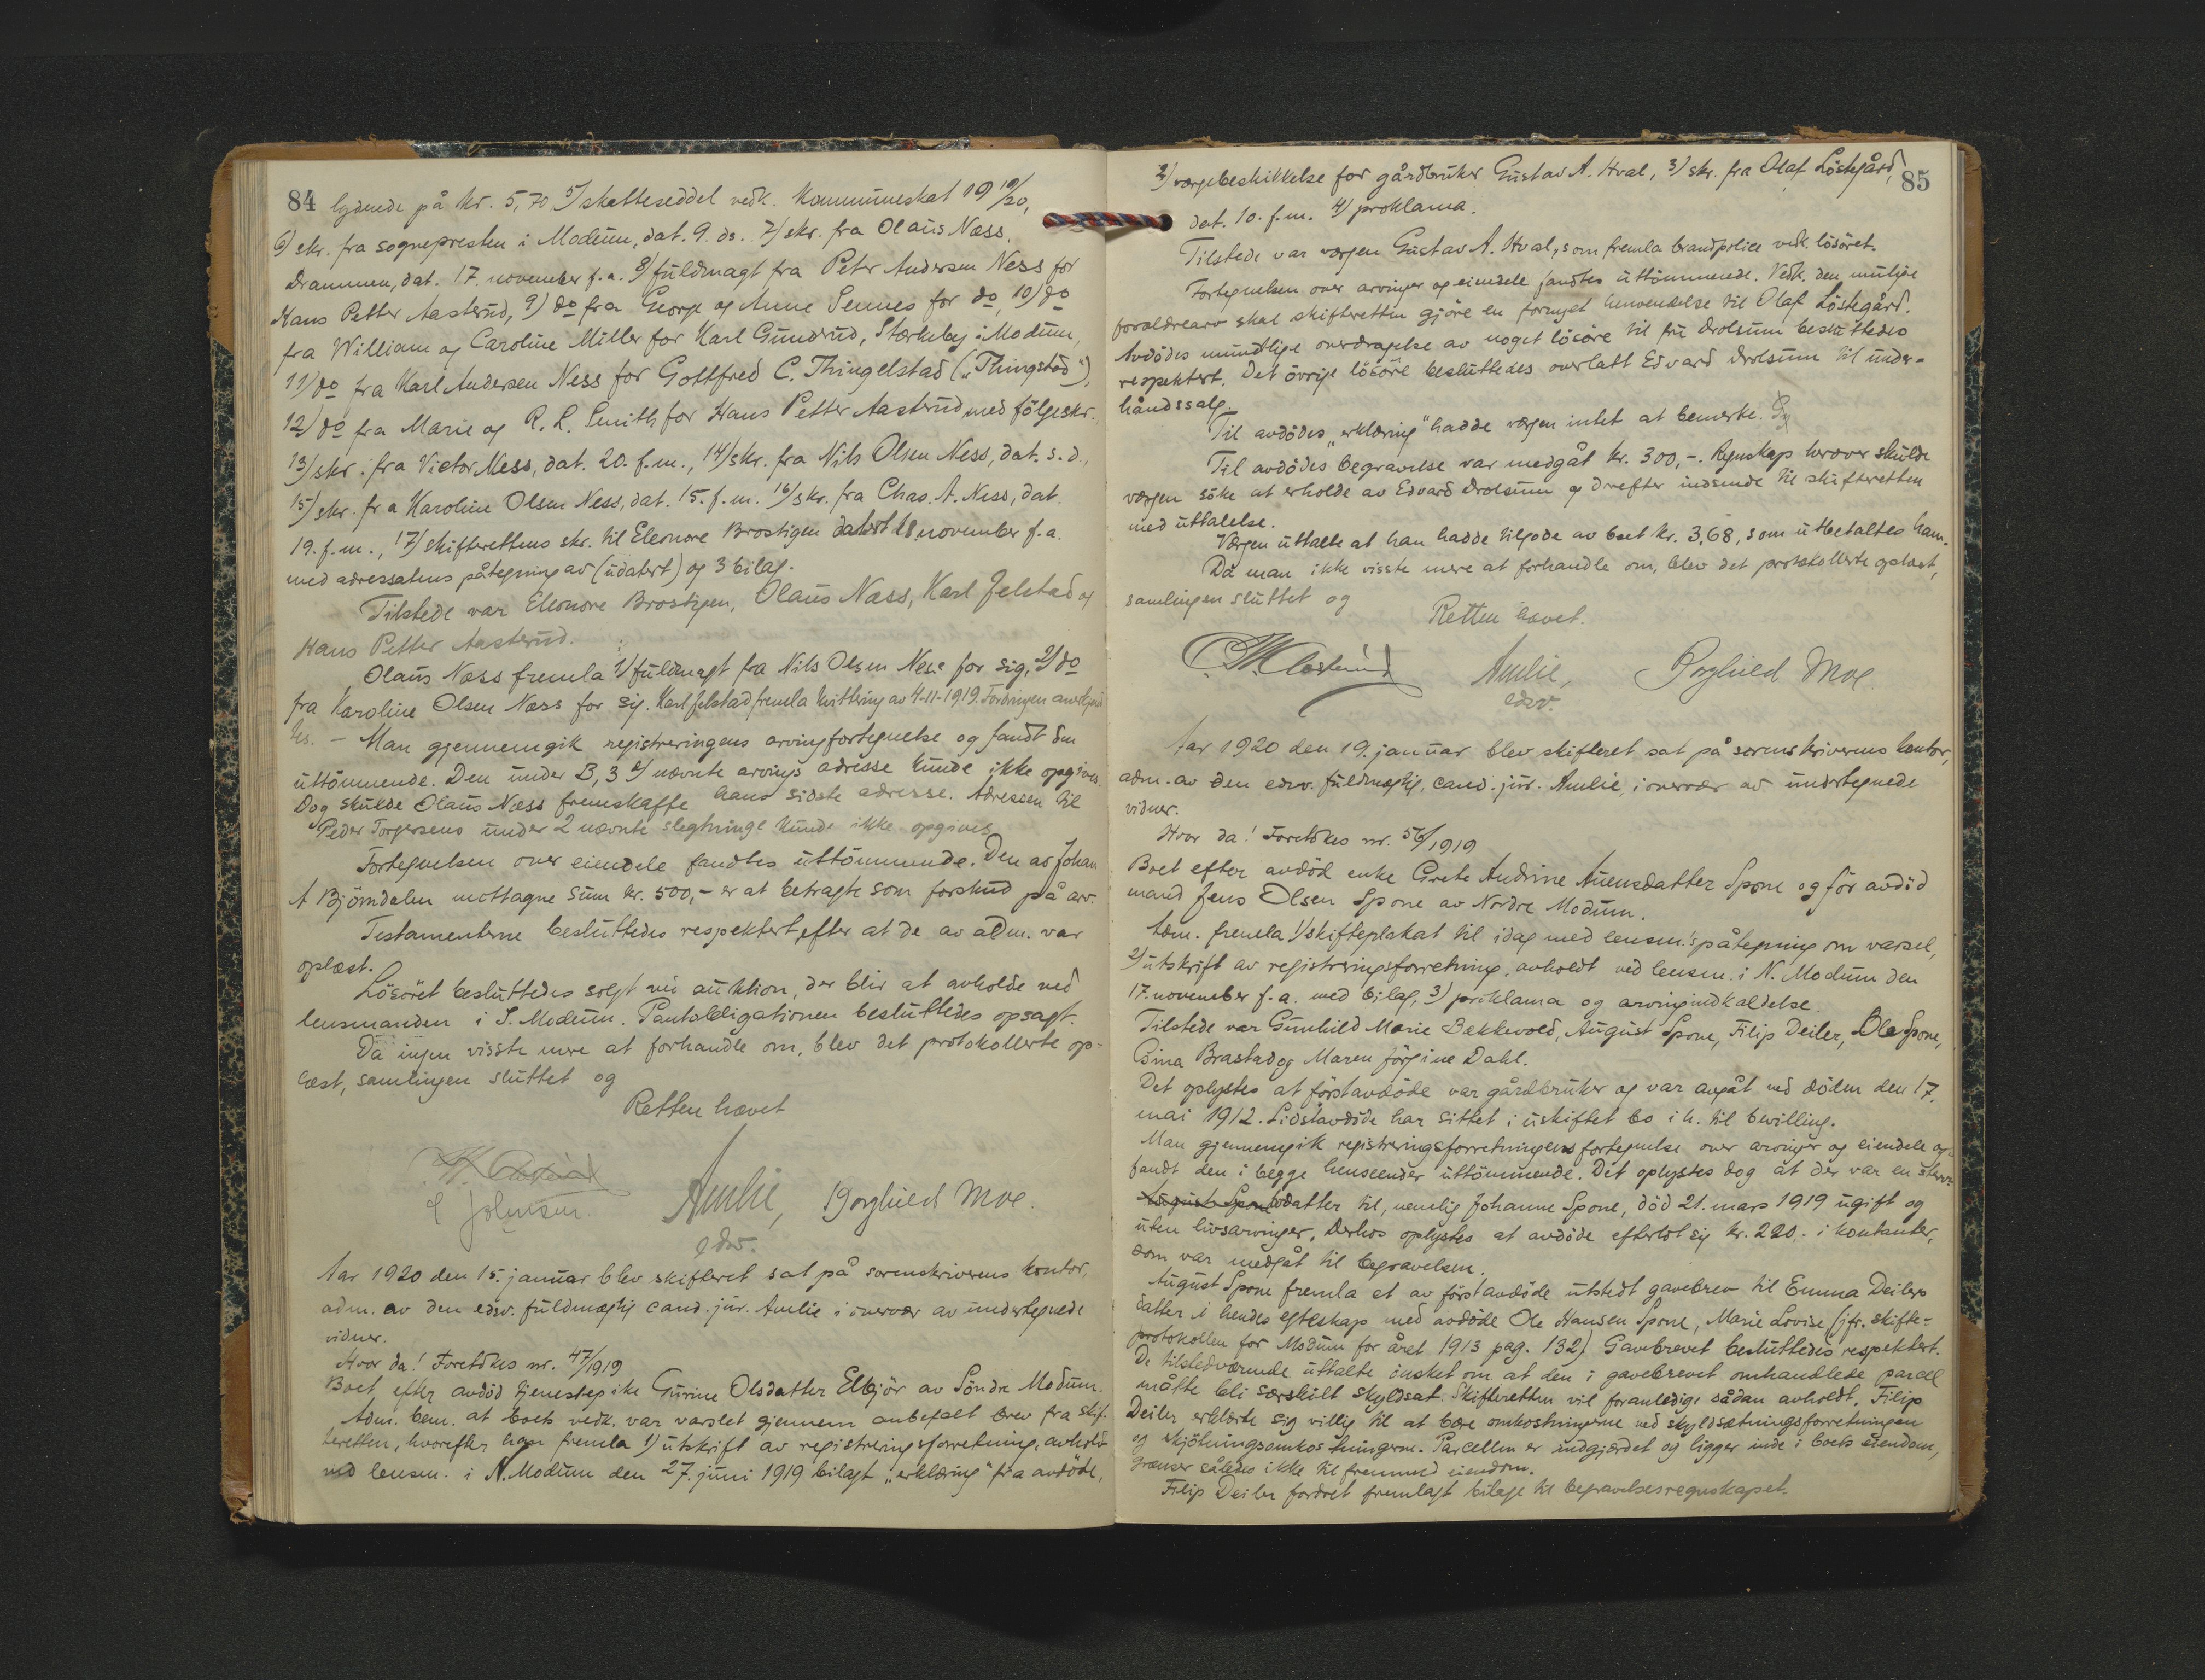 84 lydende på kr. 5,70 5/ skatteseddel vedk. kommuneskat 19 19/20,
6) skr. fra sognepresten i Modum, dat. 9. ds. 7/ skr. fra Olaus Næss
Drammen, dat. 17. november f.a. 8/ fuldmagt fra Peter Andersen Ness for
Hans Petter Aasterud, 9) do fra George og Anne Sennes for do, 10/ do
fra William og Caroline Miller for Karl Gunderud, Størkeby i Modum,
11) do fra Karl Andersen Ness for Gottfred C. Thingelstad („Thingstad"),
12) do fra Marie og R. L. Smith for Hans Petter Aasterud med følgeskr.,
13) skr. fra Victor Ness, dat. 20. f.m., 14) skr. fra Nils Olsen Ness, dat. s.d.,
15) skr. fra Karoline Olsen Ness, dat. 15. f.m. 16/ skr. fra Chas. A. Ness, dat.
19. f.m., 17) skifterettens skr. til Eleonore Brostigen datert 18 november f.a.
med adressatens påtegning av (udatert) og 3 bilag.
Tilstede var Eleonore Brostigen, Olaus Næss, Karl Jelstad og
Hans Petter Aasterud.
Olaus Næss fremla 1) fuldmagt fra Nils Olsen Ness for sig, 2) do
fra Karoline Olsen Næss for sig. Karl Jelstad fremla kvittering av 4-11-1919. Fordringen anerkjend
tes. — Man gjennemgik registreringens arvingfortegnelse og fandt den
uttömmende. Den under B, 3 nævnte arvings adresse kunde ikke opgives.
Dog skulde Olaus Næss fremskaffe hans sidste adresse. Adressen til
Peder Torgersens under 2 nævnte slegtninge kunde ikke opgives
Fortegnelsen over eiendele fandtes uttömmende. Den av Johan
A Björndalen mottagne sum kr. 500,- er at betragte som forskud på arv.
Testamenterne besluttedes respektert, efter at de av adm. var
oplæst.
Lösöret besluttedes solgt ved auktion, der blir at avholde ved
lensmanden i S. Modum. Pantobligationen besluttedes opsagt.
Da ingen visste mere at forhandle om, blev det protokollerte op-
læst, samlingen sluttet og
Retten hævet
Johnsen. Amlie, Borghild Moe.
edsv.
Aar 1920 den 15. januar blev skifteret sat på sorenskriverens kontor,
adm. av den edsv. fuldmægtig cand. jur. Amlie i overvær av undertegnede
vidner.
Hvor da! Foretokes nr. 47/1919
Boet efter avdöd tjenestepike Gurine Olsdatter Elbjör av Söndre Modum.
Adm. bem. at boets vedk. var varslet gjennem anbefalt brev fra skif-
teretten, hvorefter han fremla 1) utskrift av registreringsforretning, avholdt
ved lensm. i N. Modum den 27. juni 1919 bilagt „erklæring" fra avdöde,
85
2) vergebeskikkelse for gårdbruker Gustav A. Hval, 3/ skr. fra Olaf Löstegård,
dat. 10. f.m. 4) proklama.
Tilstede var vergen Gustav A. Hval, som fremla brandpolice vedk. lösöret.
Fortegnelsen over arvinger og eiendele fandtes uttömmende. Vedk. den mulige
forældrearv skal skifteretten gjöre en fornyet henvendelse til Olaf Löstegård.
Avdödes mundtlige overdragelse av noget lösöre til fru Drolsum besluttedes
respektert. Det övrige lösöre besluttedes overlatt Edvard Drolsum til under-
håndssalg.
Til avdödes „erklæring" hadde vergen intet at bemerke.
Til avdödes begravelse var medgåt kr. 300,-. Regnskap herover skulde
vergen söke at erholde av Edvard Drolsum og derefter indsende til skifteretten
med uttalelse.
Vergen uttalte at han hadde tilgode av boet kr. 3,68, som utbetaltes ham.
Da man ikke visste mere at forhandle om, blev det protokollerte oplæst,
samlingen sluttet og
Retten hævet.
Amlie, Borghild Moe.
edsv.
Aar 1920 den 19. januar blev skifteret sat på sorenskriverens kontor,
adm. av den edsv. fuldmægtig, cand. jur. Amlie, i overvær av undertegnede
vidner.
Hvor da! Foretokes nr. 56/1919
Boet efter avdöd enke Grete Andrine Auensdatter Spone og för avdöd
mand Jens Olsen Spone av Nordre Modum.
Adm. fremla 1) skifteplakat til idag med lensm.'s påtegning om varsel,
2) utskrift av registreringsforretning, avholdt ved lensm. i N. Modum den
17. november f.a. med bilag, 3) proklama og arvingindkaldelse.
Tilstede var Gunhild Marie Bækkevold, August Spone, Filip Deiler, Ole Spone,
Gina Brastad og Maren Jörgine Dahl.
Det oplystes at förstavdöde var gårdbruker og var avgåt ved döden den 17.
mai 1912. Sidstavdöde har sittet i uskiftet bo i h. til bevilling.
Man gjennemgik registreringsforretningens fortegnelse over arvinger og eiendele og
fandt den i begge henseender uttömmende. Det oplystes dog at der var en
August Spone datter til, nemlig Johanne Spone, död 21. mars 1919 ugift og
uten livsarvinger. Derhos oplystes at avdöde efterlot sig kr. 220,- i kontanter,
som var medgåt til begravelsen.
August Spone fremla et av förstavdöde utstedt gavebrev til Emma Deilers
datter i hendes egteskap med avdöde Ole Hansen Spone, Marie Lovise (jfr. skifte-
protokollen for Modum for året 1913 pag. 132). Gavebrevet besluttedes respektert.
De tilstedeværende uttalte önsket om at den i gavebrevet omhandlede parcel
måtte bli særskilt skyldsat. Skifteretten vil foranledige sådan avholdt. Filip
Deiler erklærte sig villig til at bære omkostningerne ved skyldsætningsforretningen
og skjötningsomkostningerne. Parcellen er indgjærdet og ligger inde i boets eiendom,
grænser således ikke til fremmed eiendom.
Filip Deiler fordret fremlagt bilage til begravelsesregnskapet.